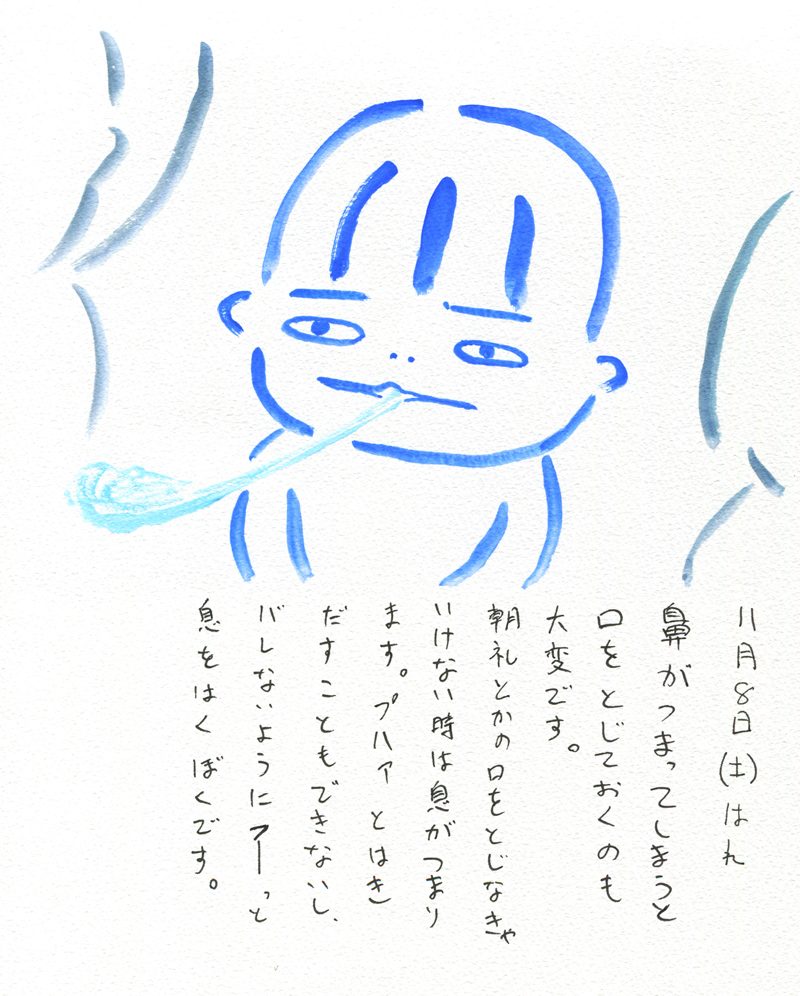 11月8日(土)はれ
鼻がつまってしまうと
口をとじておくのも
大変です。
朝礼とかの口をとじなきゃ
いけない時は息がつまり
ます。プハァとはき
だすこともできないし、
バレないようにフーっと
息をはくぼくです。